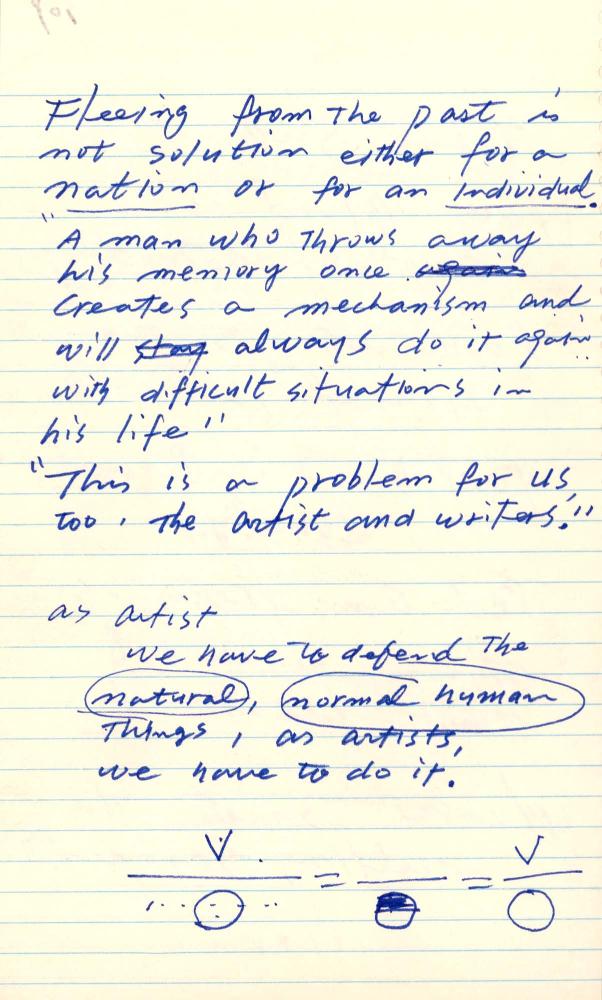 Fleeing from the past is
not solution either for a
nation or for an individual.
"A man who throws away
his memory once again
creates a mechanism and
will stay always do it again
with difficult situations in
his life"
"This is a problem for us,
too. The artist and writers."
as artist
we have to defend the
natural, normal human
things, as artists,
we have to do it.
V V
= =